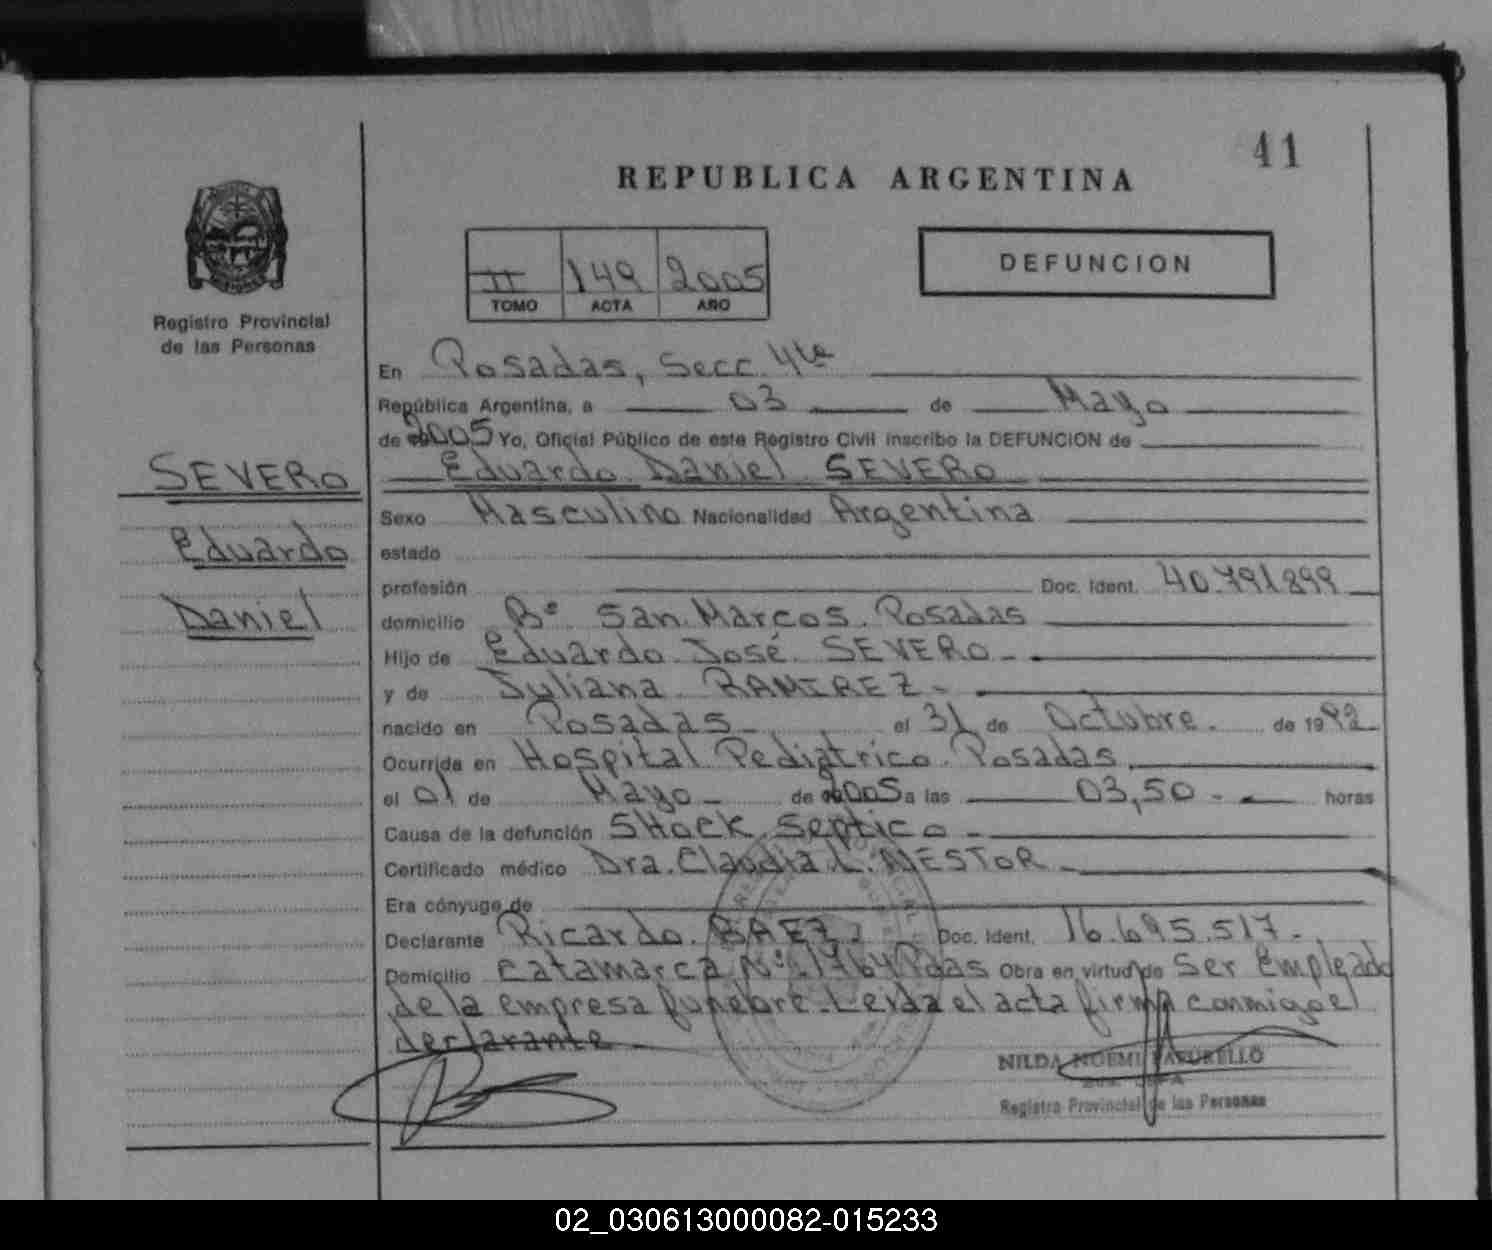 41
REPUBLICA ARGENTINA
II 149 2005
TOMO ACTA AÑO
DEFUNCION
Registro Provincial
de las Personas
SEVERO
Eduardo
Daniel
En Posadas, Secc. 4ta
República Argentina, a 03 de Mayo
de 2005 Yo, Oficial Público de este Registro Civil inscribo la DEFUNCION de
Eduardo Daniel SEVERO
Sexo Masculino Nacionalidad Argentina
estado
profesión Doc. Ident. 40.791.899
domicilio Bº San Marcos. Posadas
Hijo de Eduardo José SEVERO.-
y de Juliana RAMIREZ.-
nacido en Posadas el 31 de Octubre. de 1992
Ocurrida en Hospital Pediatrico. Posadas.
el 01 de Mayo de 2005 a las 03,50.- horas
Causa de la defunción SHock septico.-
Certificado médico Dra. Claudia L. NESTOR
Era cónyuge de
Declarante Ricardo BAEZ. Doc. Ident. 16.695.517.-
Domicilio Catamarca Nº 1764 Pdas Obra en virtud de Ser Empleado
de la empresa funebre. Leida el acta firma conmigo el
declarante
NILDA NOEMI
Registro Provincial de las Personas
02_030613000082-015233